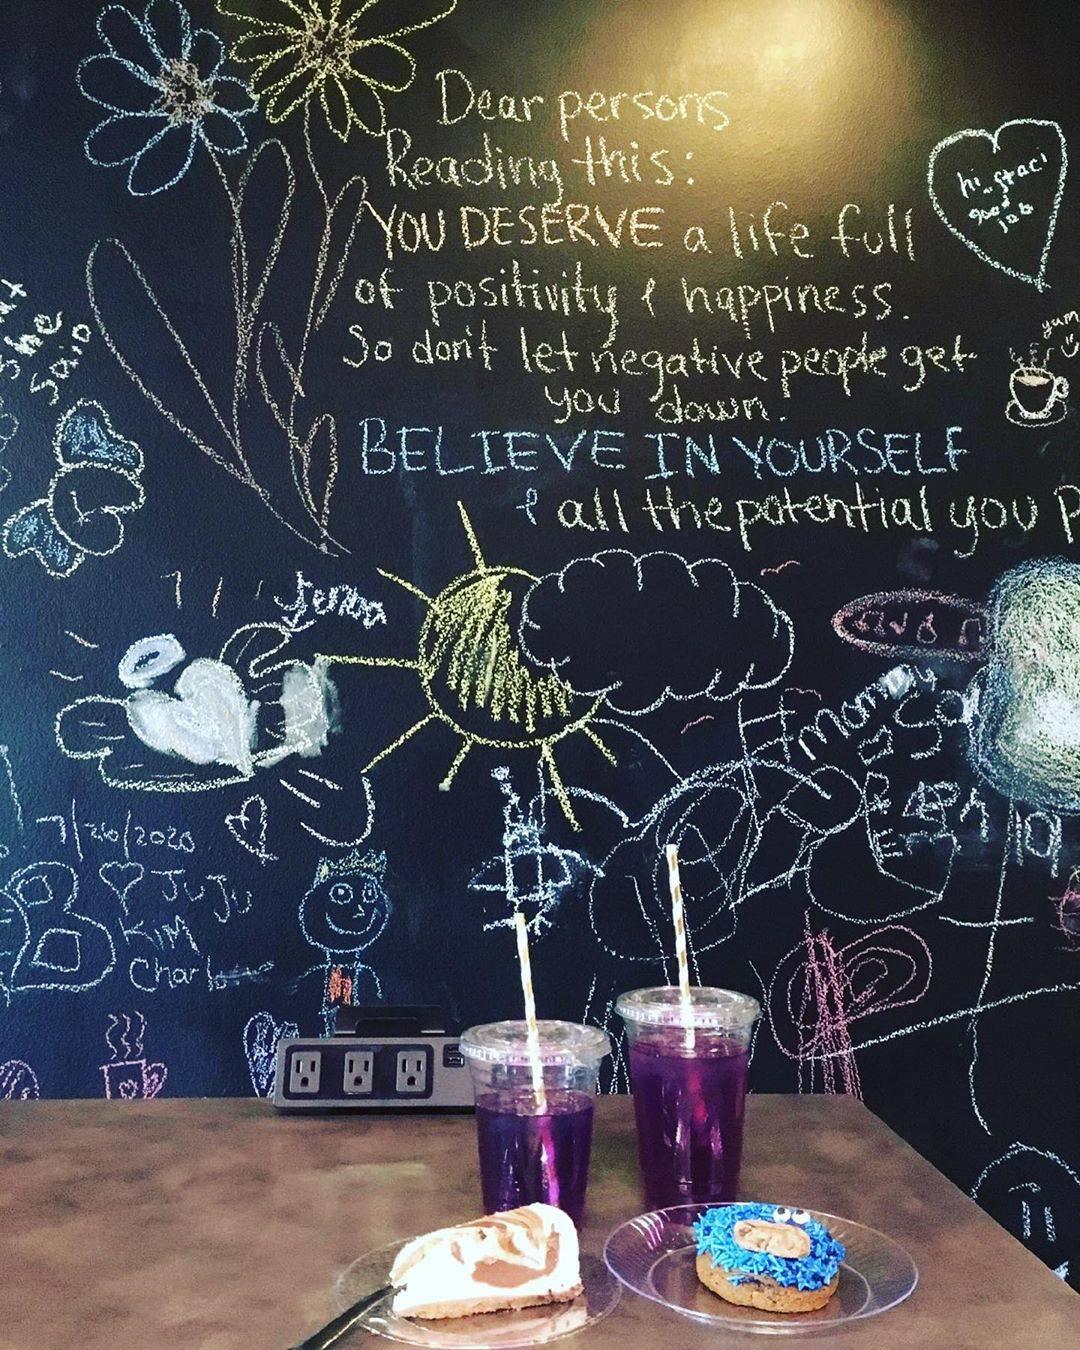 Dear persons
Reading this:
YOU DESERVE a life full
of positivity & happiness.
So don't let negative people get
you down.
BELIEVE IN YOURSELF
& all the potential you
hi, staci
good
job
yum
she
said
7/26/2020
JUJU
KIM